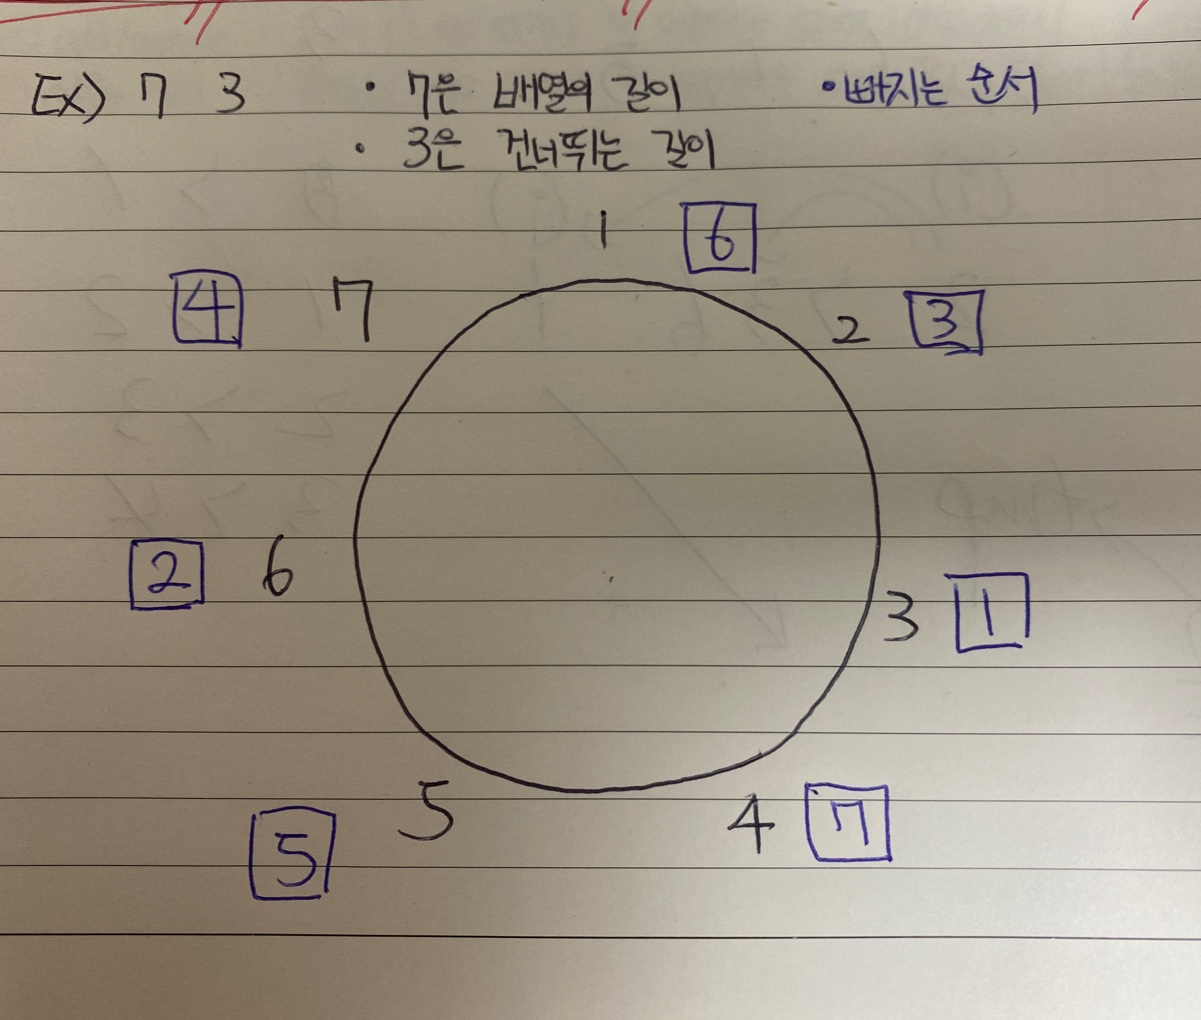 Ex) 7 3 • 7은 배열의 길이 • 빠지는 순서
• 3은 건너뛰는 길이
1 6
4 7
2 3
2 6
3 1
5
4 7
5